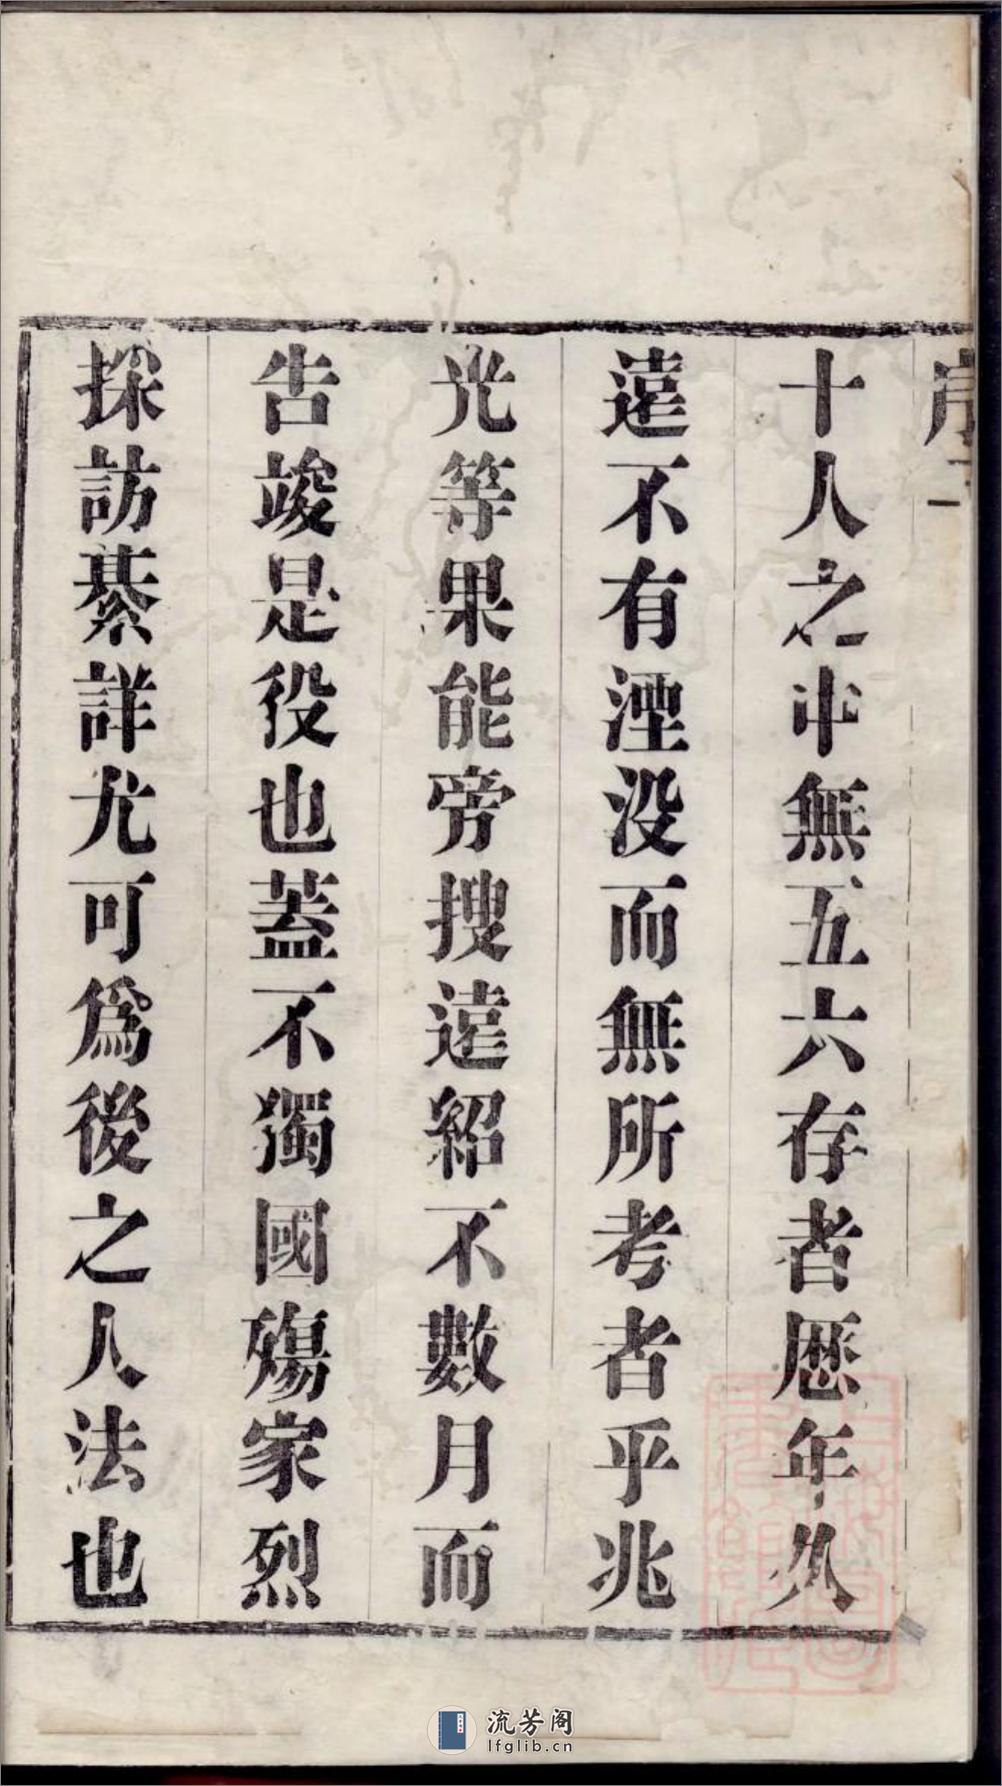 序
十人之中無五六存者歷年久
遠不有湮没而無所考者乎兆
光等果能旁搜遠紹不數月而
告竣是役也蓋不獨國殤家烈
採訪綦詳尤可爲後之人法也
流芳阁
lfglib.cn